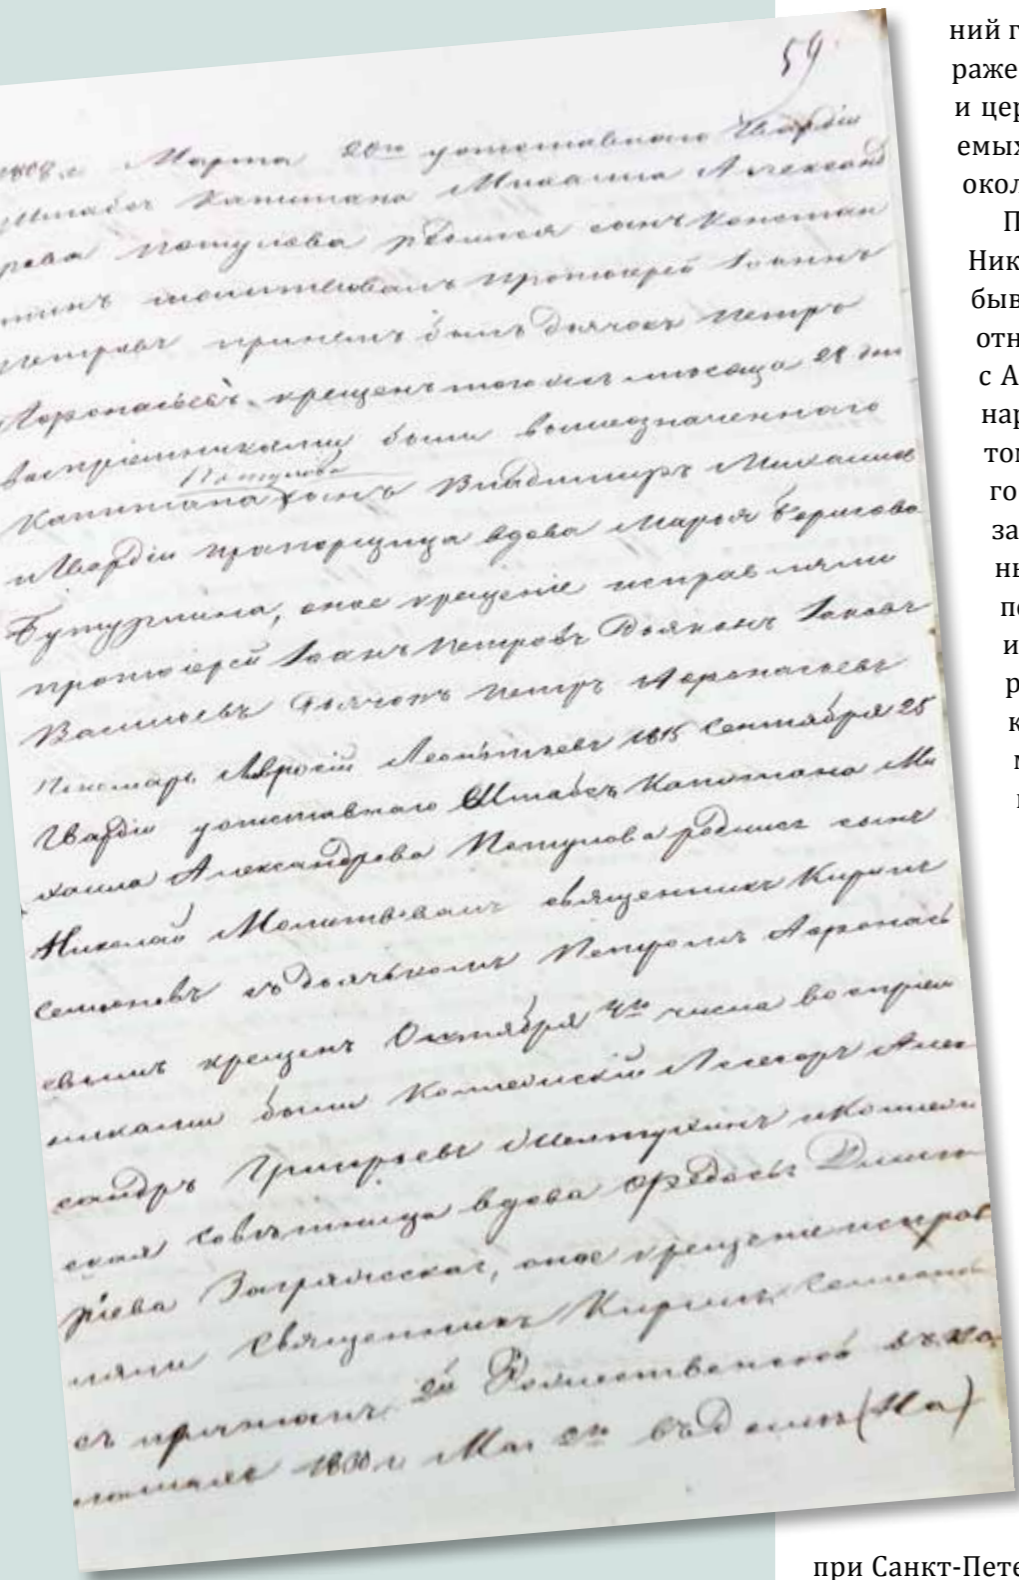 59
1808 г. Марта 20го у отставного Гвардіи
Штабсъ Капитана Михаила Александ
рова Потулова родился сынъ Констан
тинъ молитвовалъ протоіерей Іоаннъ
Петровъ принемъ былъ дьячокъ Петръ
Афонасьевъ, крещенъ того жъ мѣсяца 28 дня
воспріемниками были вышеозначенного
Потулова
Капитана сынъ Владимиръ Михаиловъ
и Гвардіи прапорщица вдова Марья Борисова
Бутурлина, оное крещеніе исправляли
протоіерей Іоанъ Петровъ Дьяконъ Іаковъ
Васильевъ Дьячокъ Петръ Афонасьевъ
Пономарь Леонтьевъ 1815 Сентября 25
Гвардіи у отставнаго Штабсъ Капитана Ми
хаила Александрова Потулова родился сынъ
Николай Молитвовалъ священникъ Кирилъ
Семеновъ съ дьячькомъ Петромъ Афонась
евымъ крещенъ Октября 4го числа воспріем
никами были Колежскій Асесоръ Алек
сандръ Григорьевъ и Колежс
ская Совѣтница вдова Федосья Дмит
ріева Загряжская, оное крещеніе исправ
ляли Священникъ Кирилъ Семеновъ
съ причтомъ 2й Рожественской въ
1800 г. Мая 2го въ домѣ (На)
ний г
раже
и цер
емых
окол
П
Ник
быв
отн
с А
нар
том
го
за
ны
по
и
р
к
м
при Санкт-Пете